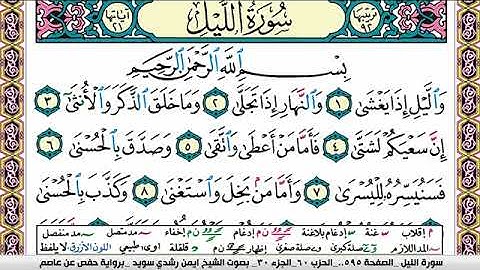 ترتيبها ٩٢ سُورَةُ اللَّيْلِ آياتها ٢١
بِسْمِ اللَّهِ الرَّحْمَٰنِ الرَّحِيمِ
وَالَّيْلِ إِذَا يَغْشَىٰ ١ وَالنَّهَارِ إِذَا تَجَلَّىٰ ٢ وَمَا خَلَقَ الذَّكَرَ وَالْأُنثَىٰ ٣
إِنَّ سَعْيَكُمْ لَشَتَّىٰ ٤ فَأَمَّا مَنْ أَعْطَىٰ وَاتَّقَىٰ ٥ وَصَدَّقَ بِالْحُسْنَىٰ ٦
فَسَنُيَسِّرُهُ لِلْيُسْرَىٰ ٧ وَأَمَّا مَنْ بَخِلَ وَاسْتَغْنَىٰ ٨ وَكَذَّبَ بِالْحُسْنَىٰ
م إقلاب س غنة إدغام بلاغنة ن م إدغام إخفاء مد متصل مد منفصل
المد اللازم صلة كبرى صلة صغرى إظهار ن م قلقلة اوى طبيعي اللون الأزرق لا يلفظ
سورة الليل_ الصفحة ٥٩٥_ الحزب ٦٠_الجزء ٣٠_ بصوت الشيخ أيمن رشدي سويد _برواية حفص عن عاصم